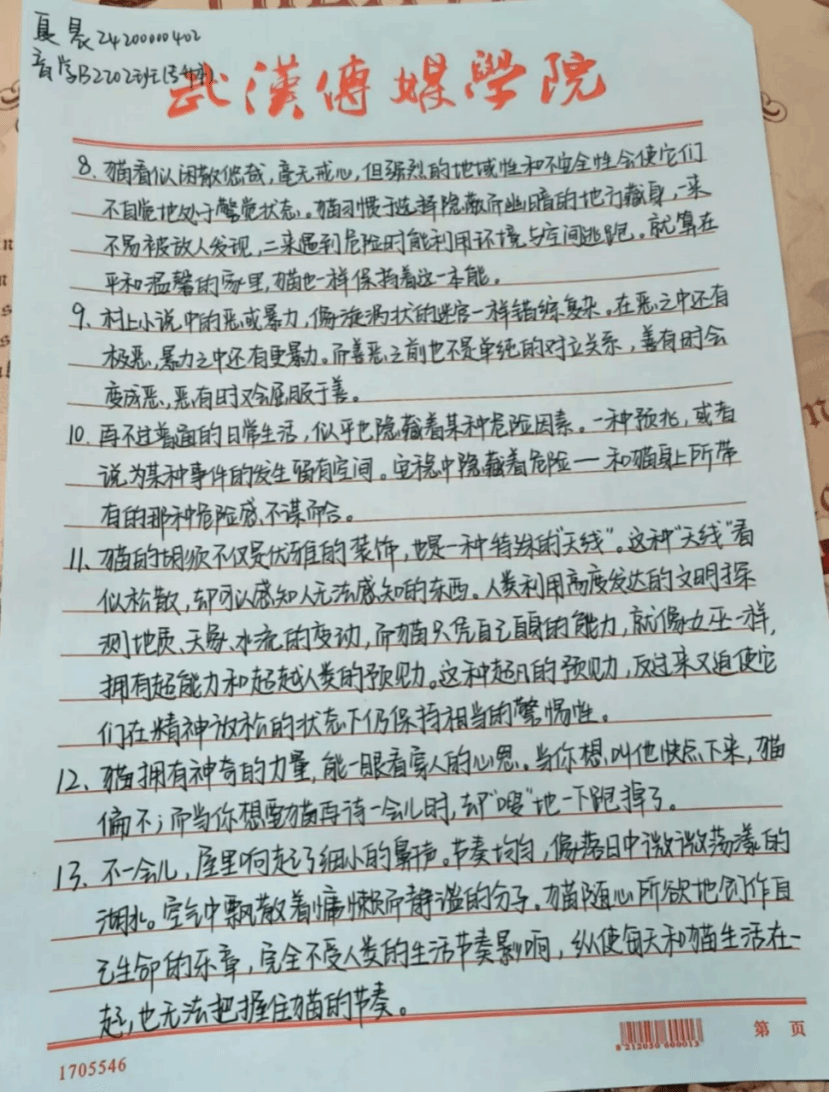 夏晟24200000402
音学B2202班(专升本)
武漢傳媒學院
8、猫看似闲散悠哉,毫无戒心,但强烈的地域性和不安全性会使它们
不自觉地处于警觉状态。猫习惯于选择隐蔽而幽暗的地方藏身,一来
不易被敌人发现,二来遇到危险时能利用环境与空间逃跑。就算在
平和温馨的家里,猫也一样保持着这一本能。
9、村上小说中的恶或暴力,像漩涡状的迷宫一样错综复杂。在恶之中还有
极恶,暴力之中还有更暴力。而善恶之前也不是单纯的对立关系,善有时会
变成恶,恶有时又会屈服于善。
10、再不过普通的日常生活,似乎也隐藏着某种危险因素。一种预兆,或者
说为某种事件的发生留有空间。安稳中隐藏着危险—和猫身上所带
有的那种危险感不谋而合。
11、猫的胡须不仅是优雅的装饰,也是一种特殊的"天线"。这种"天线"看
似松散,却可以感知人无法感知的东西。人类利用高度发达的文明探
测地质、天象、水流的变动,而猫只凭自己自身的能力,就像女巫一样,
拥有超能力和超越人类的预见力。这种超凡的预见力,反过来又迫使它
们在精神放松的状态下仍保持相当的警惕性。
12、猫拥有神奇的力量,能一眼看穿人的心思。当你想叫他快点下来,猫
偏不;而当你想要猫再待一会儿时,却"嗖"地一下跑掉了。
13、不一会儿,屋里响起了细小的鼾声。节奏均匀,像落日中微微荡漾的
湖水。空气中飘散着慵懒而静谧的分子。猫随心所欲地创作自
己生命的乐章,完全不受人类的生活节奏影响,纵使每天和猫生活在一
起,也无法把握住猫的节奏。
1705546
8 212050 600013
第 页